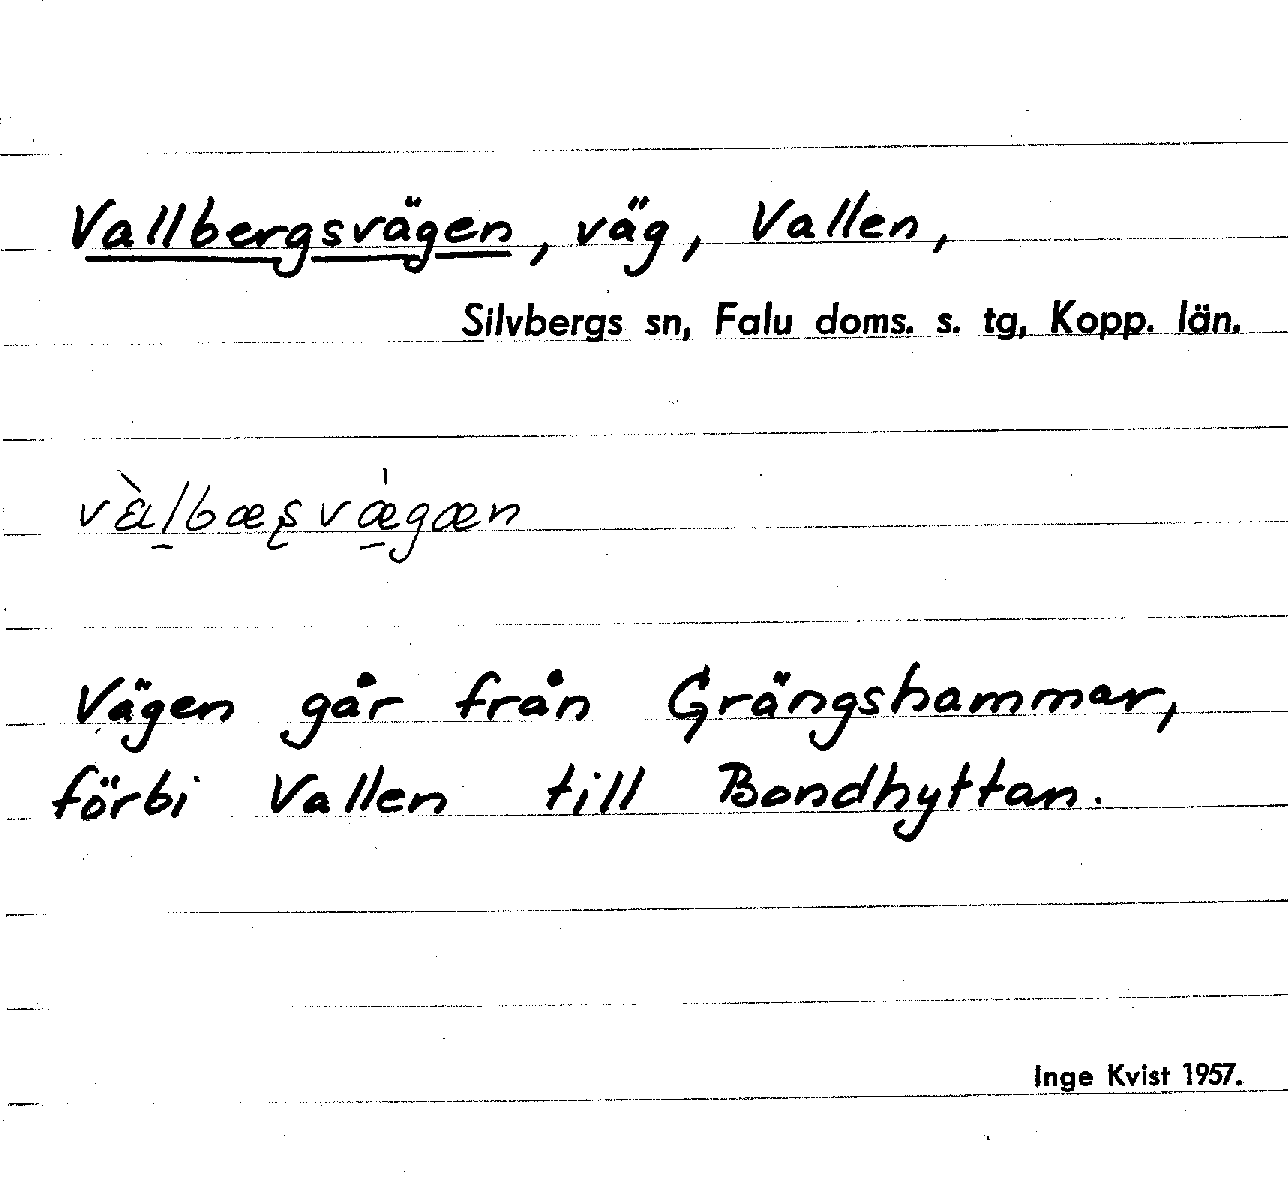 Vallbergsvägen, väg, Vallen,
Silvbergs sn, Falu doms. s. tg, Kopp. län.
Vägen går från Grängshammar,
förbi Vallen till Bondhyttan.
Inge Kvist 1957.